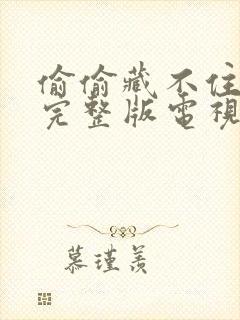 偷偷藏不住
完整版電視
慕瑾羨